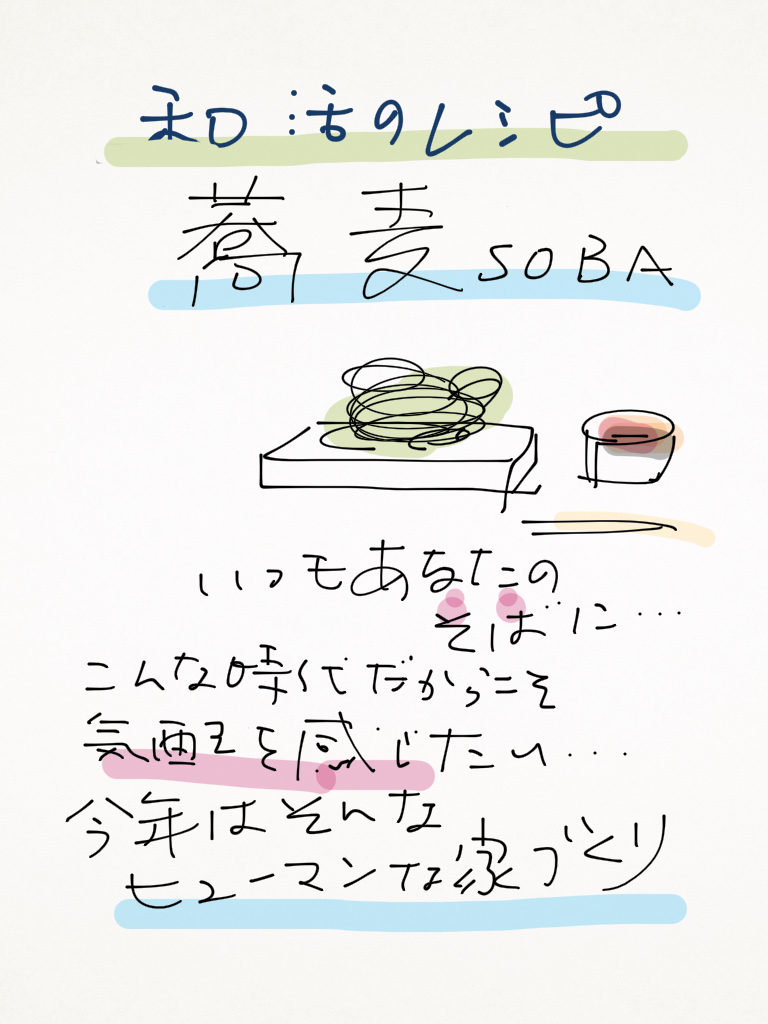 和活のレシピ
蕎麦 SOBA
いつもあなたの
そばに···
こんな時代だからこそ
気配を感じたい···
今年はそんな
ヒューマンな家づくり